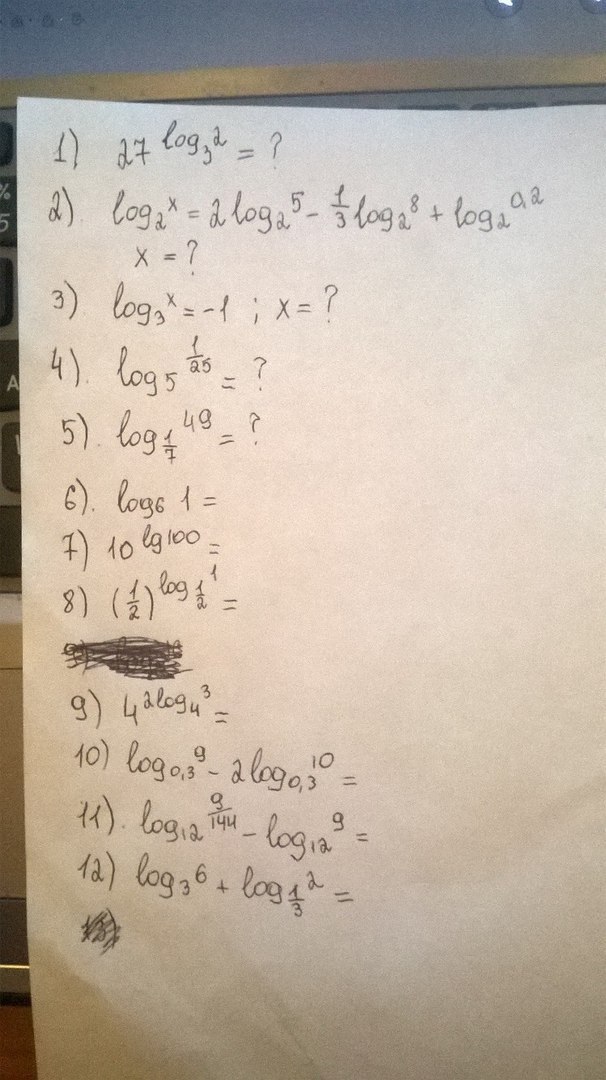 1) 27^log₃2 = ?
2) log₂x = 2log₂5 - 1/3 log₂8 + log₂0,2
x = ?
3) log₃x = -1 ; x = ?
4). log₅ 1/25 = ?
5). log₁/₇ 49 = ?
6). log₆ 1 =
7) 10^lg100 =
8) (1/2)^log₁/₂ 1 =
9) 4^2log₄3 =
10) log₀,₃9 - 2log₀,₃10 =
11). log₁₂ 9/144 - log₁₂9 =
12) log₃6 + log₁/₃ 2 =